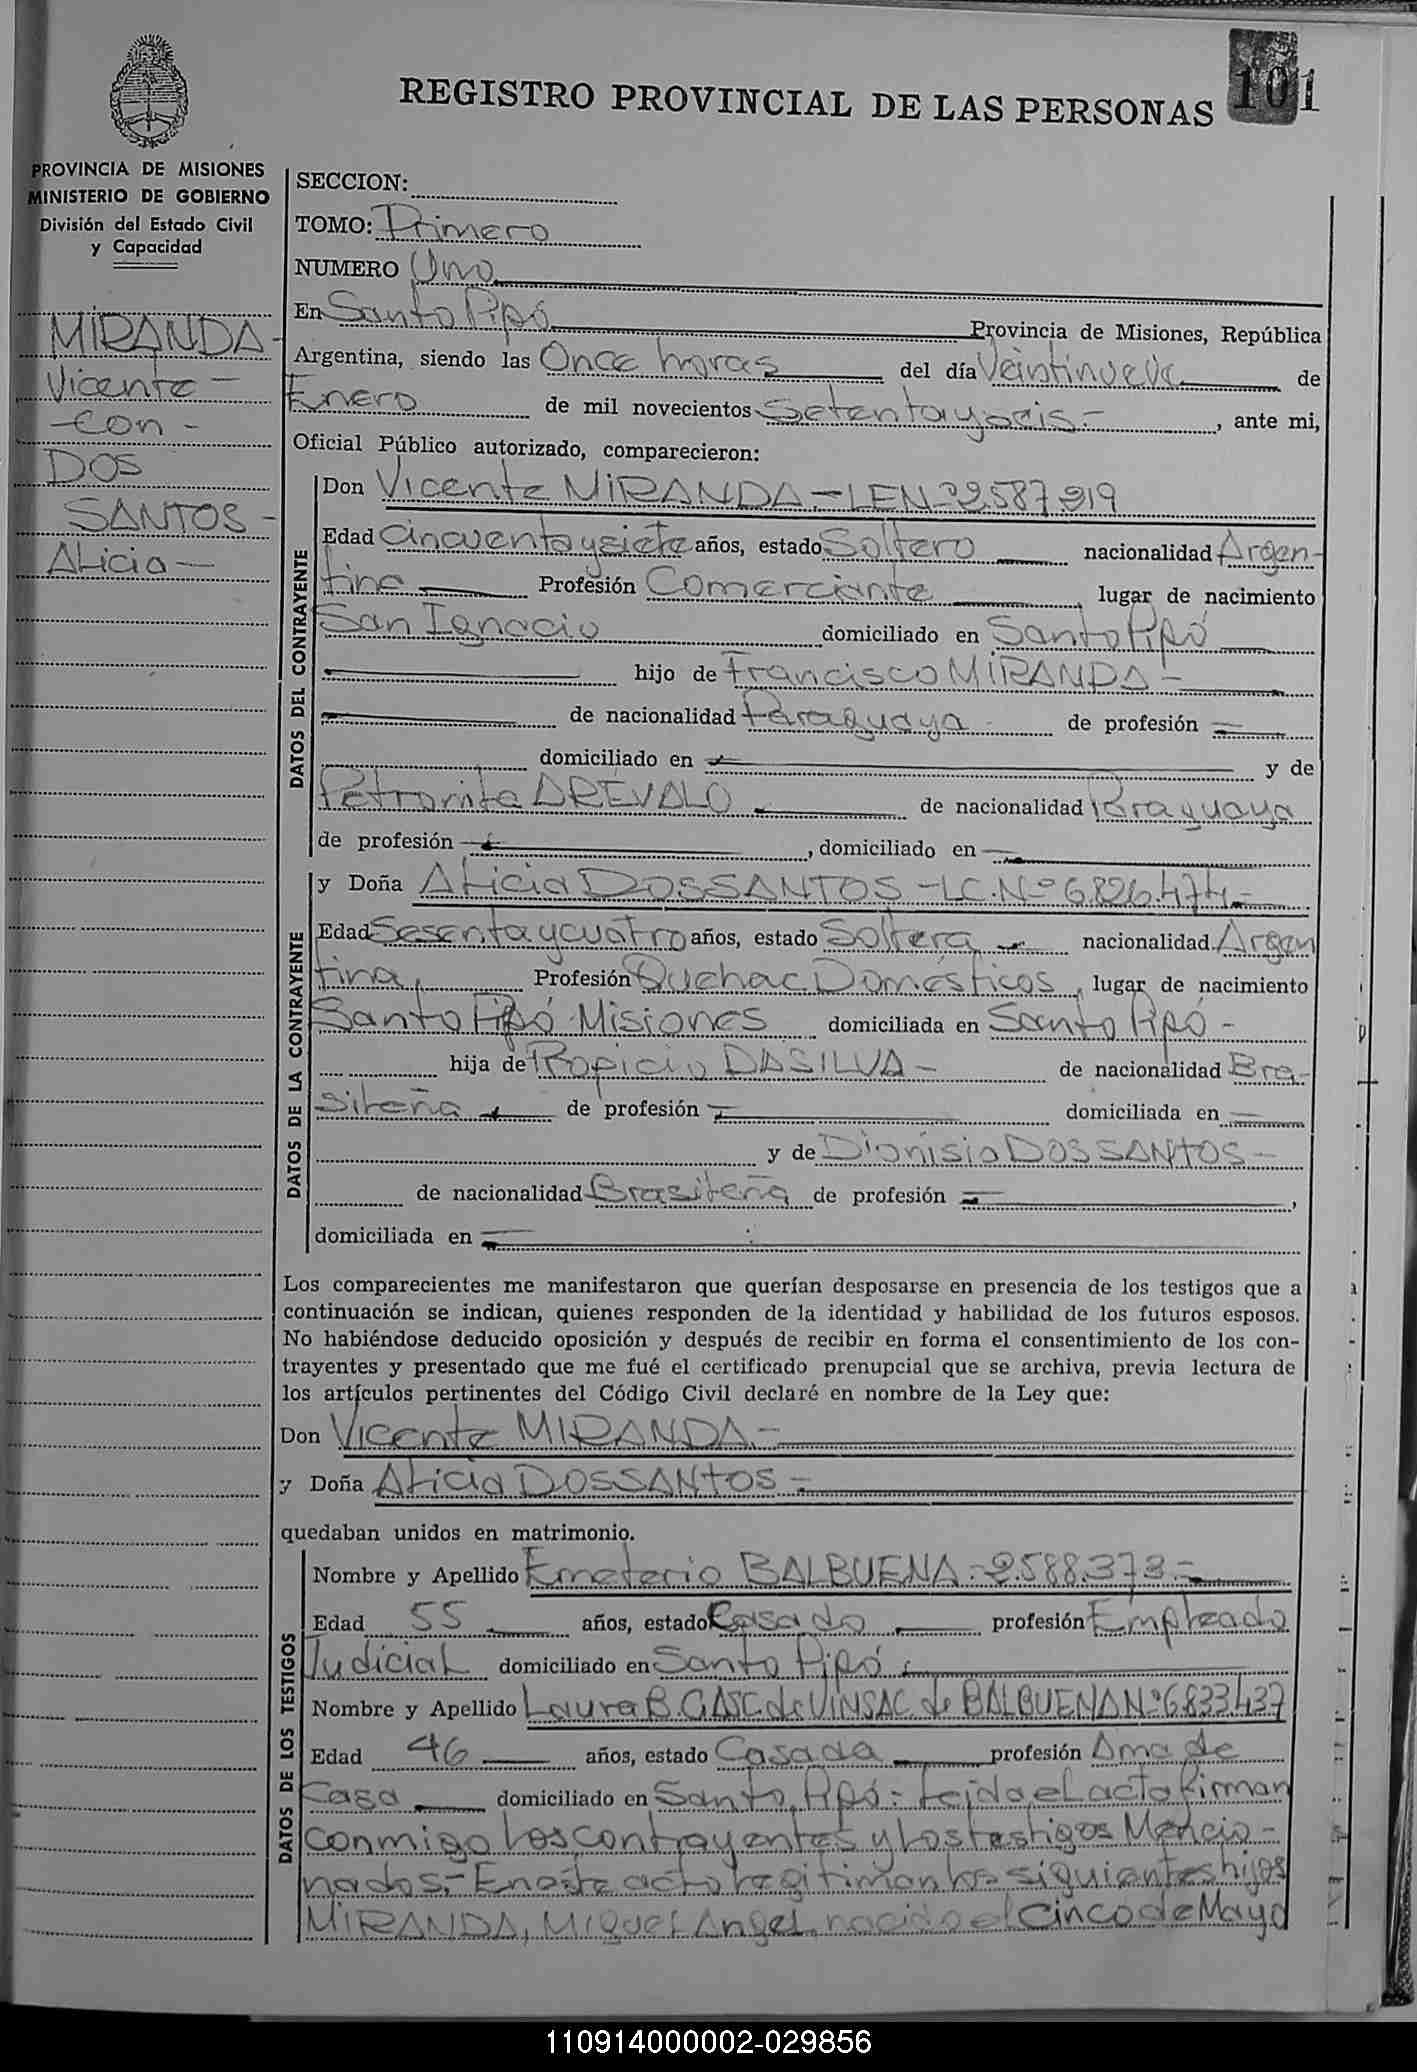 REGISTRO PROVINCIAL DE LAS PERSONAS
101
PROVINCIA DE MISIONES
MINISTERIO DE GOBIERNO
División del Estado Civil
y Capacidad
MIRANDA-
Vicente-
-con-
DOS
SANTOS-
Alicia-
SECCION:
TOMO: Primero
NUMERO Uno
En Santo Pipó Provincia de Misiones, República
Argentina, siendo las Once horas del día Veintinueve de
Enero de mil novecientos Setenta y seis.- , ante mi,
Oficial Público autorizado, comparecieron:
DATOS DEL CONTRAYENTE
Don Vicente MIRANDA.-LEN-2.587.919
Edad Cincuenta y siete años, estado Soltero nacionalidad Argen-
tina Profesión Comerciante , lugar de nacimiento
San Ignacio domiciliado en Santo Pipó
hijo de Francisco MIRANDA-
de nacionalidad Paraguaya de profesión
domiciliado en y de
Petronita AREVALO de nacionalidad Paraguaya
de profesión , domiciliado en
DATOS DE LA CONTRAYENTE
y Doña Alicia DOS SANTOS-LC.Nº6.826.474-
Edad Sesenta y cuatro años, estado Soltera nacionalidad Argen
tina, Profesión Quehac Domésticos , lugar de nacimiento
Santo Pipó Misiones domiciliada en Santo Pipó-
hija de Propicio DASILVA- de nacionalidad Bra-
sileña de profesión domiciliada en
y de Dionisia DOS SANTOS-
de nacionalidad Brasileña de profesión ,
domiciliada en
Los comparecientes me manifestaron que querían desposarse en presencia de los testigos que a
continuación se indican, quienes responden de la identidad y habilidad de los futuros esposos.
No habiéndose deducido oposición y después de recibir en forma el consentimiento de los con-
trayentes y presentado que me fué el certificado prenupcial que se archiva, previa lectura de
los artículos pertinentes del Código Civil declaré en nombre de la Ley que:
Don Vicente MIRANDA.-
y Doña Alicia DOS SANTOS-
quedaban unidos en matrimonio.
DATOS DE LOS TESTIGOS
Nombre y Apellido Emeterio BALBUENA-2.588.373.-
Edad 55 años, estado Casado profesión Empleado
Judicial domiciliado en Santo Pipó
Nombre y Apellido Laura B. GASC de VINSAC de BALBUENA Nº6.833.437
Edad 46 años, estado Casada profesión Ama de
Casa domiciliado en Santo Pipó- Leida el acta firman
conmigo los contrayentes y los testigos Mencio-
nados.- En este acto legitiman los siguientes hijos
MIRANDA, Miguel Angel, nacido el Cinco de Mayo
110914000002-029856